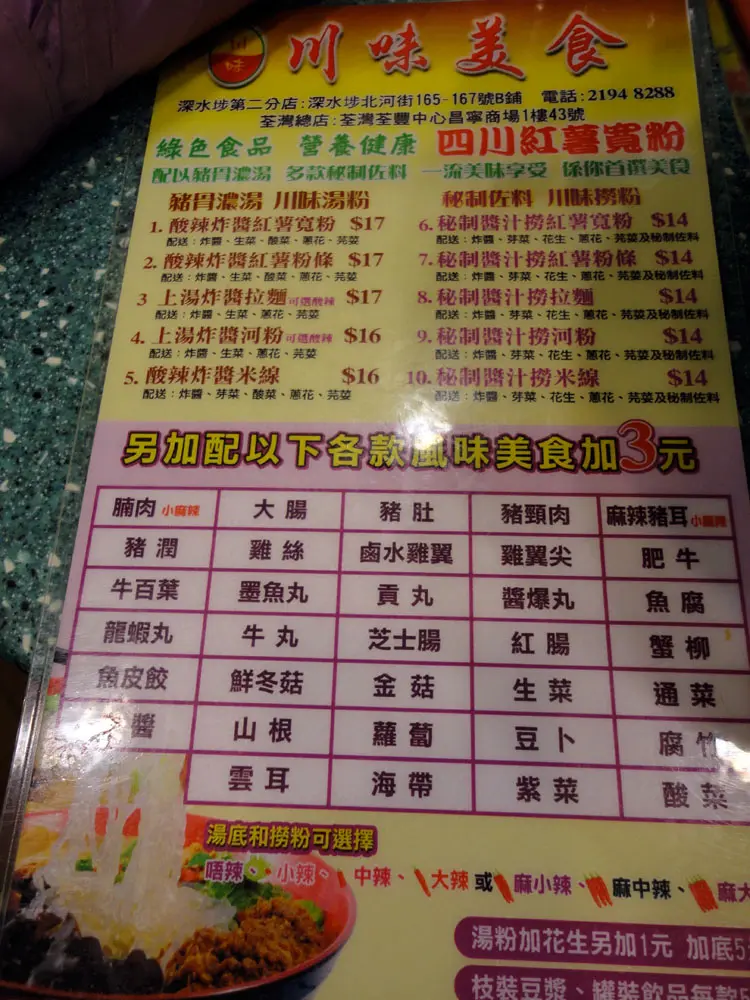 川味
川味美食
深水埗第二分店:深水埗北河街165-167號B鋪 電話:2194 8288
荃灣總店:荃灣荃豐中心昌寧商場1樓43號
綠色食品 營養健康 四川紅薯寬粉
配以豬骨濃湯 多款秘制佐料 一流美味享受 係你首選美食
豬骨濃湯 川味湯粉
1. 酸辣炸醬紅薯寬粉 $17
配送：炸醬、生菜、酸菜、蔥花、芫荽
2. 酸辣炸醬紅薯粉條 $17
配送：炸醬、生菜、酸菜、蔥花、芫荽
3 上湯炸醬拉麵可選酸辣 $17
配送：炸醬、生菜、蔥花、芫荽
4. 上湯炸醬河粉可選酸辣 $16
配送：炸醬、生菜、蔥花、芫荽
5. 酸辣炸醬米線 $16
配送：炸醬、芽菜、酸菜、蔥花、芫荽
秘制佐料 川味撈粉
6. 秘制醬汁撈紅薯寬粉 $14
配送：炸醬、芽菜、花生、蔥花、芫荽及秘制佐料
7. 秘制醬汁撈紅薯粉條 $14
配送：炸醬、芽菜、花生、蔥花、芫荽及秘制佐料
8. 秘制醬汁撈拉麵 $14
配送：炸醬、芽菜、花生、蔥花、芫荽及秘制佐料
9. 秘制醬汁撈河粉 $14
配送：炸醬、芽菜、花生、蔥花、芫荽及秘制佐料
10. 秘制醬汁撈米線 $14
配送：炸醬、芽菜、花生、蔥花、芫荽及秘制佐料
另加配以下各款風味美食加3元
腩肉 小麻辣 大腸 豬肚 豬頸肉 麻辣豬耳 小麻辣
豬潤 雞絲 鹵水雞翼 雞翼尖 肥牛
牛百葉 墨魚丸 貢丸 醬爆丸 魚腐
龍蝦丸 牛丸 芝士腸 紅腸 蟹柳
魚皮餃 鮮冬菇 金菇 生菜 通菜
醬 山根 蘿蔔 豆卜 腐竹
雲耳 海帶 紫菜 酸菜
湯底和撈粉可選擇
唔辣、小辣、中辣、大辣 或 麻小辣、麻中辣、麻大
湯粉加花生另加1元 加底5
枝裝豆漿、罐裝飲品每款